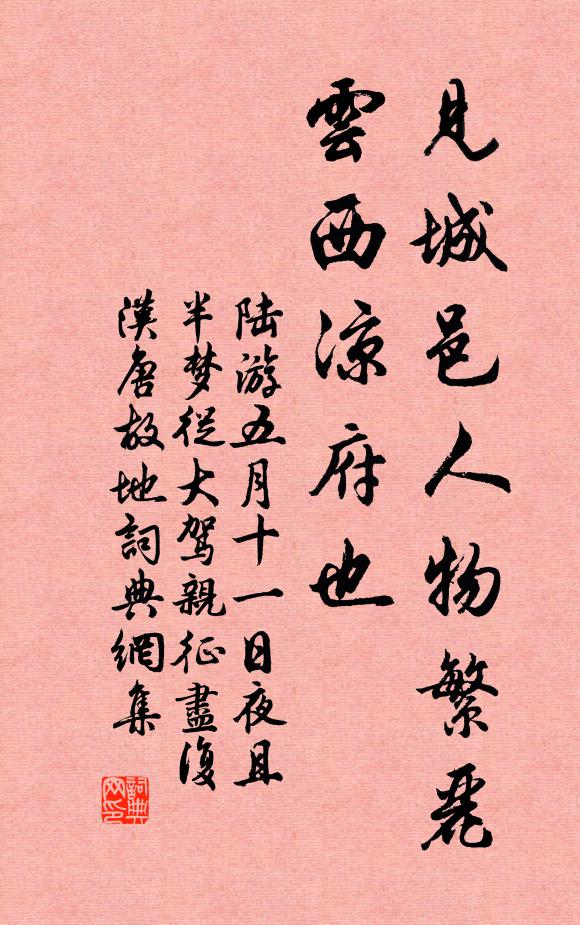 見城邑人物繁麗
雲西涼府也
陆游五月十一日夜且
半梦從大駕親征盡復
漢唐故地詞典網集
詞典
网印